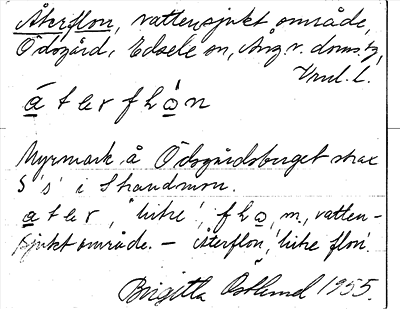 Återflon, vattensjukt område,
Ödsgård, Edsele sn, Ång. v. doms.
Vml. L.
á t e r f l ò n
Myrmark å Ödsgårdsberget strax
S 's' i Skandmon.
a t e r, 'litke', f l o, m, vatten-
sjukt område. – Återflon, 'litke flon'.
Birgitta Östlund 1955.